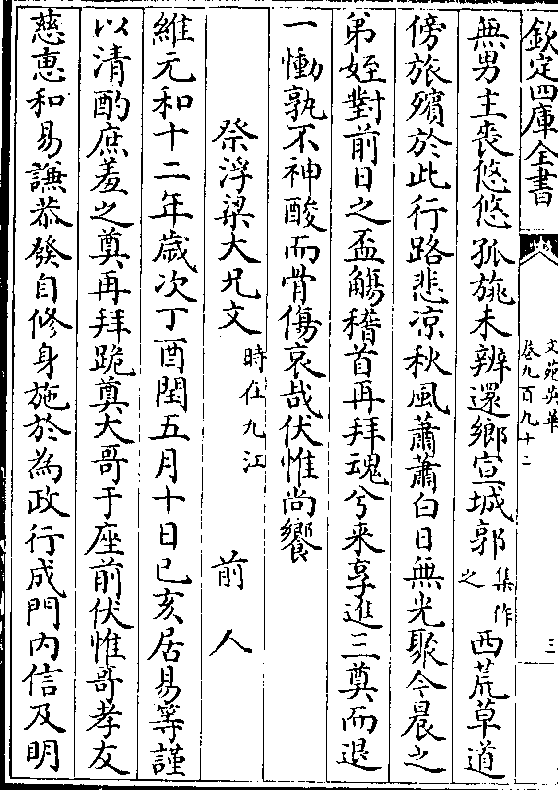 欽定四庫全書
文苑英華
卷九百九十二
三
無男主喪悠悠孤旐未辨還鄉宣城郭集作之西荒草道
傍旅殯於此行路悲凉秋風蕭蕭白日無光聚今晨之
弟姪對前日之盃觴稽首再拜魂兮來享進三奠而退
一慟孰不神酸而骨傷哀哉伏惟尚饗
祭浮梁大兄文時在九江 前人
維元和十二年歲次丁酉閏五月十日已亥居易等謹
以清酌庶羞之奠再拜跪奠大哥于座前伏惟哥孝友
慈惠和易謙恭發自修身施於為政行成門内信及明